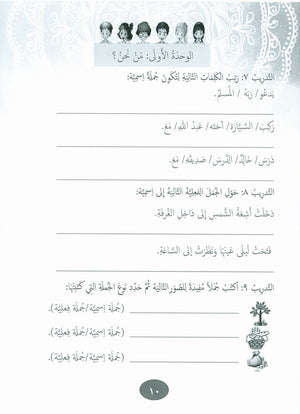 الوحدة الأولى: من نحن؟
التدريب ٧: رتب الكلمات التالية لتكون جملة اسمية:
يدعو/ ربه/ المسلم.
ركب/ السيارة/ أخته/ عبد الله/ مع.
درس/ خالد/ الدرس/ صديقه/ مع.
التدريب ٨: حول الجمل الفعلية التالية إلى اسمية:
دخلت أشعة الشمس إلى داخل الغرفة.
فتحت ليلى عينها ونظرت إلى الساعة.
التدريب ٩: اكتب جملا مفيدة للصور التالية ثم حدد نوع الجملة التي كتبتها:
(جملة اسمية/جملة فعلية).
(جملة اسمية/جملة فعلية).
(جملة اسمية/جملة فعلية).
١٠